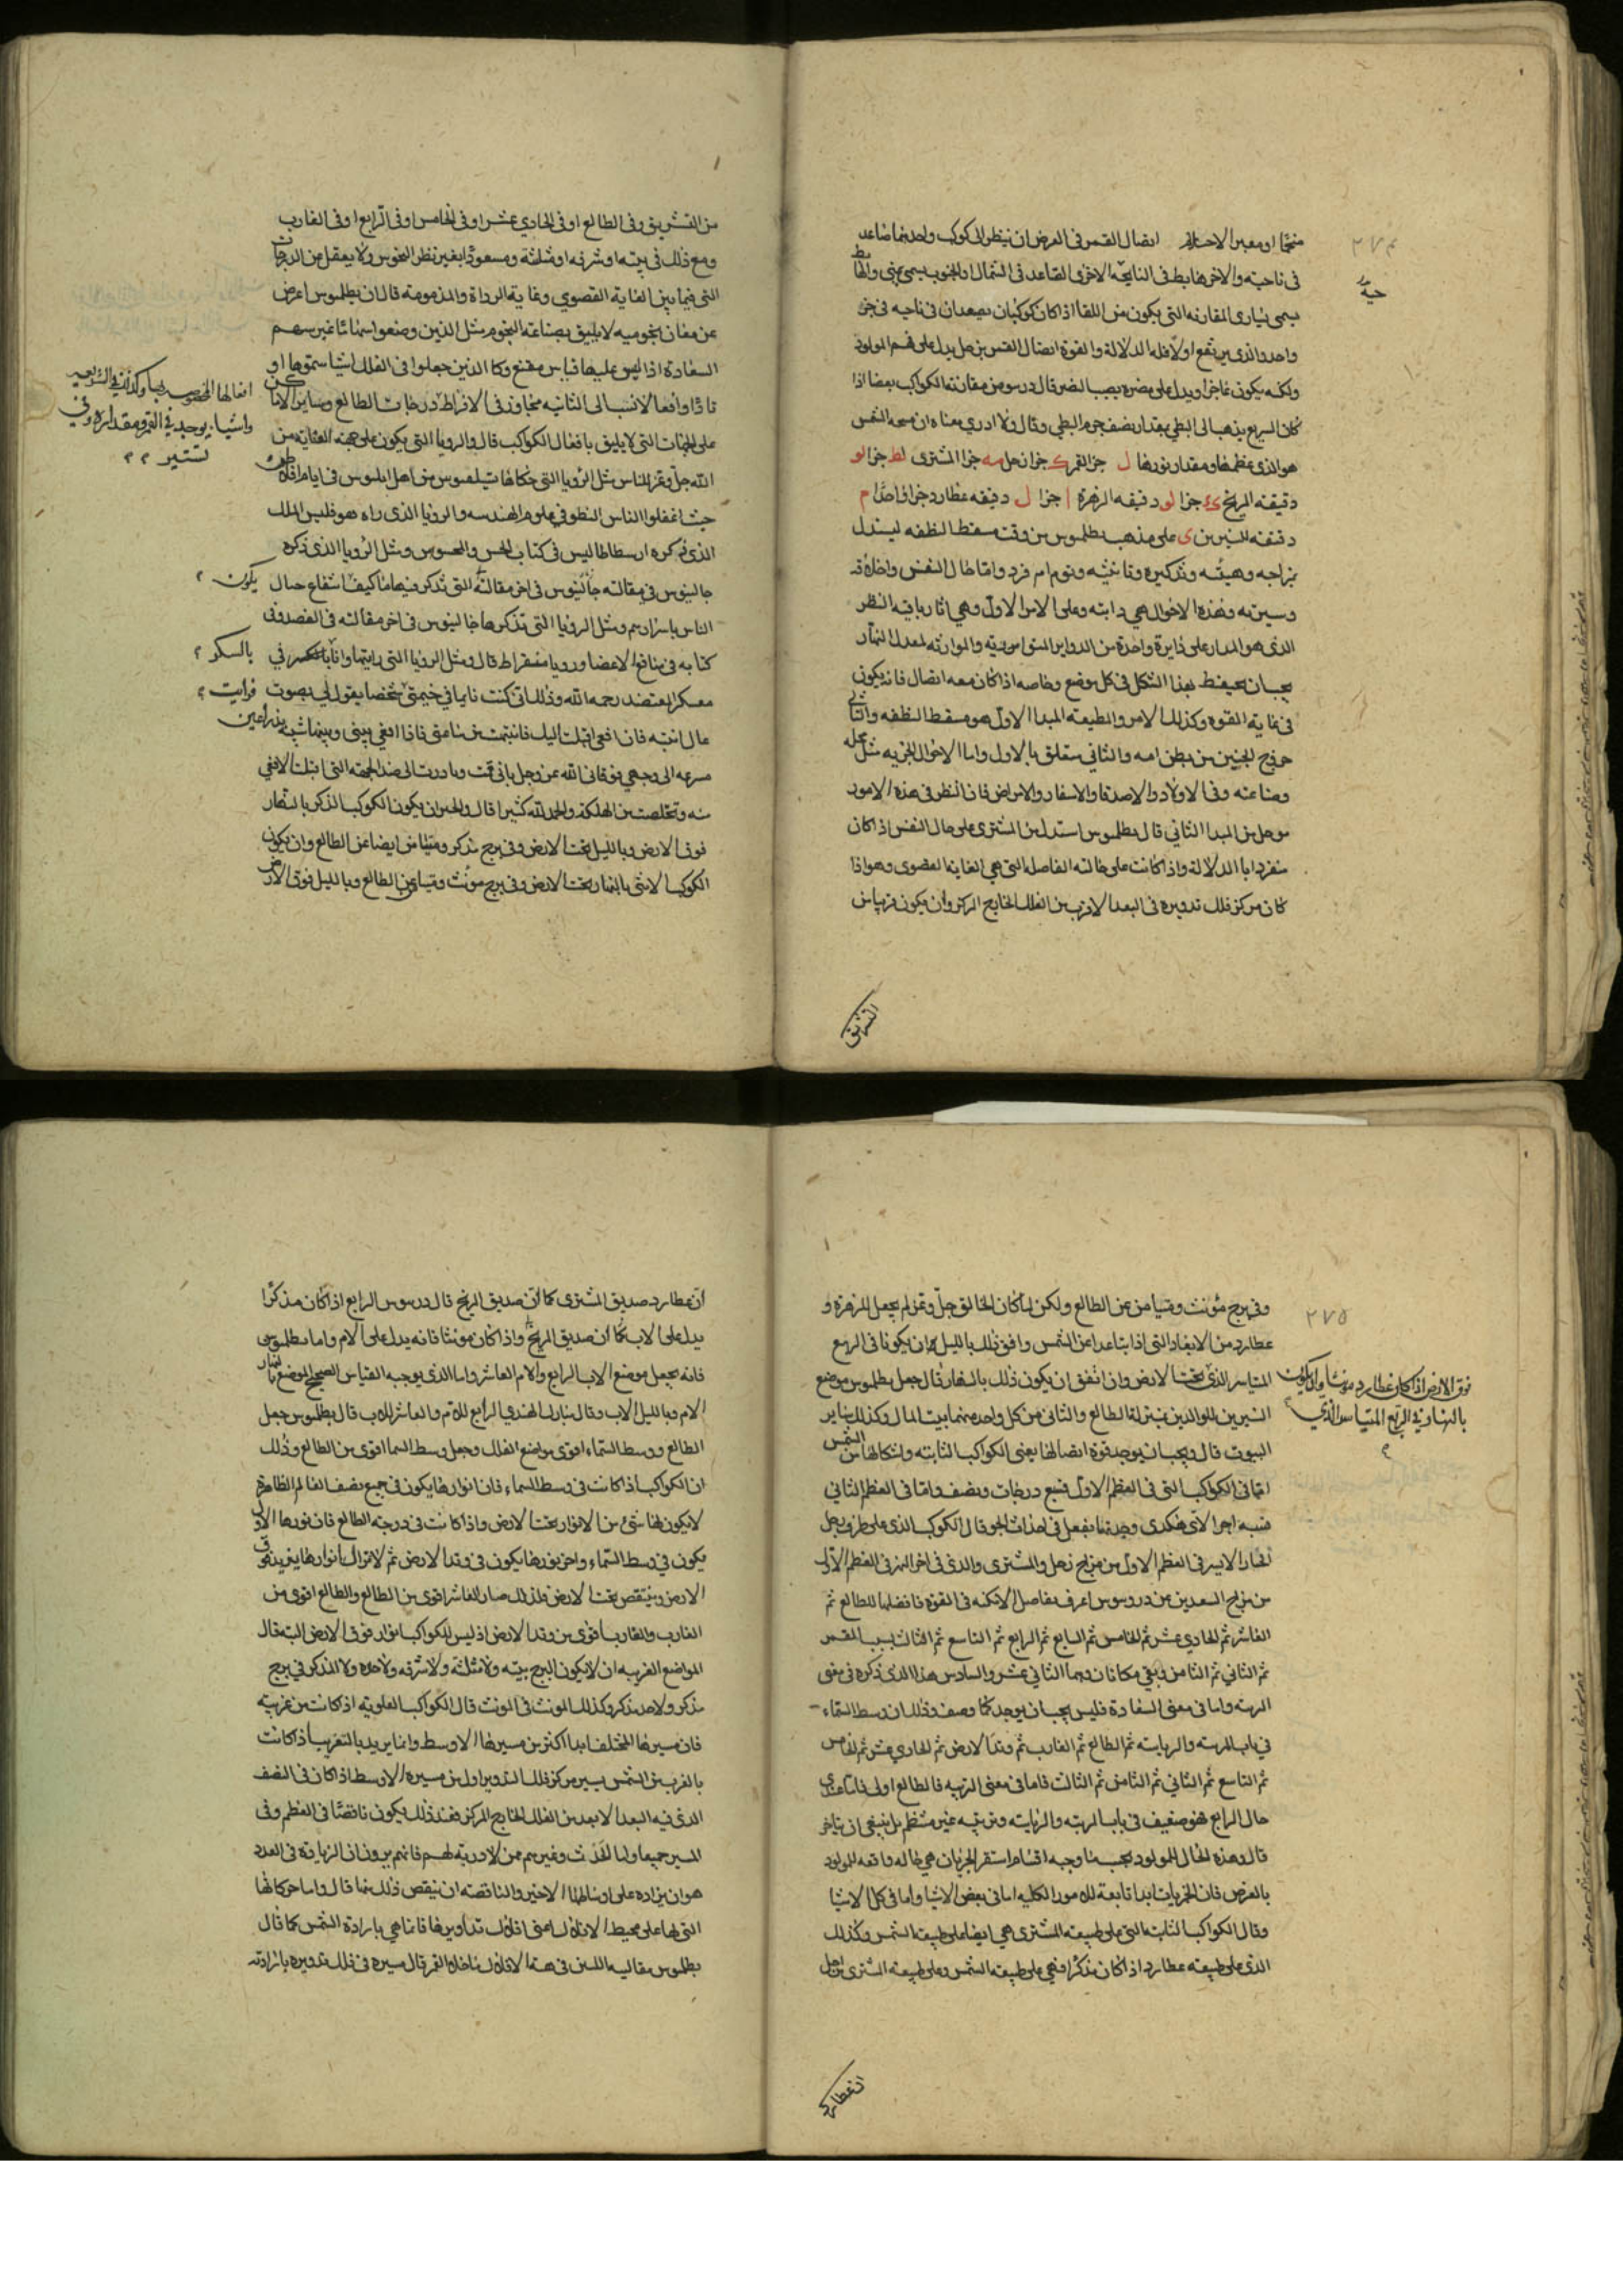 منجما او معبر الاحلام اتصال القمر في العرض ان ينظر الى كوكب واحدهما صاعد
في ناحيته والاخر هابط في الناحية الاخرى الصاعد في الشمال او الجنوب يسمى يمنى والهابط
يسمى يسارى المقارنه التى يكون من اللقا اذا كان كوكبان يصعدان في ناحيه في جز
واحد والذى يرتفع اولا فله الدلالة والقوة اتصال القمر بزحل يدل على فهم المولود
ولكنه يكون عاجزا ويدل على مضره بصب البصر قال دروسوس مقارنة الكواكب بعضها اذا
كان السريع يذهب الى البطي بمقدار نصف جرم البطي وقال ولا ادري معناه ان صحه الشمس
هو الذى عظمها ومقدار نورها ل جز القمر ك جزا زحل مه جزا المشترى لط جزا لو
دقيقته المريخ جزا لو دقيقه الزهرة ا جزا ل دقيقه عطارد جزا واحدًا م
دقيقه للنيرين ى على مذهب بطلموس من وقت مسقط النطفه ليستدل
بمزاجه وهيئته وتذكيره وتانيثه وتوام ام فرد واما حال النفس واخلاقه
وسيرته وهذه الاحوال هي ذاتيه وعلى الامر الاول وهي اثار باقيه النظر
الذى هو المدار على دايرة واحدة من الدواير المتواسيه والموازيه لمعدل النهار
يجب ان يحتفظ بهذا الشكل في كل موضع وخاصه اذا كان معه اتصال فانه يكون
في غاية القوه وكذلك الامر والطبيعه المبدا الاول هو مسقط النطفه والثاني
خروج الجنين من بطن امه والثاني متعلق بالاول واما الاحوال الجزيه مثل عمله
وصناعته وفي الاولاد والاصدقا والاسفار والامراض فان النظر في هذه الامور
موجل من المبدا الثاني قال بطلموس استدل من المشترى على حال النفس اذا كان
منفردا بالدلالة واذا كانت على حالته الفاصله التى هي الغايه القصوى وهو اذا
كان مركز فلك تدويره في البعد الاقرب من الفلك الخارج المركز وان يكون قريبا من
التشريق
٢٧٤
من التشريق وفي الطالع او في الحادي عشر او في الخامس او في الرابع او في الغارب
ومع ذلك في بيته او شرفه او مثلثة ومسعودًا بغير نظر النحوس ولا يعقل من الدرجات
التى فيما بين الغاية القصوى وغاية الرداة والمذمومة قال ان بطلموس اعرض
عن معان نجوميه لا يليق بصناعة النجوم مثل الذين وضعوا سهاما غير سهم
السعادة اذ ليس عليها قياس مقنع وكالذين جعلوا في الفلك اشيا سموها او
نارًا وافعالا نسب الى الثانيه مجاوز في الافراط درجات الطالع وساير الاماكن
على الجهات التى لا يليق بافعال الكواكب قال والرويا التى يكون على جهة العناية من
الله جل وعز للناس مثل الرويا التى حكاها من اهل في ايام افلاطون
حيث اغفلوا الناس النظر في علوم الهندسه والرويا الذى راه هو فلبس الملك
الذى ذكره ارسطاطاليس في كتاب الحس والمحسوس ومثل الرويا الذى ذكره
جالينوس في مقالته جالينوس في اخر مقالته التى تذكر فيها كيف انتفاع حال يكون
الناس باسرارهم ومثل الرويا التى تذكرها جالينوس في اخر مقالته في الفصد وفي
كتابه في منافع الاعضا ورويا سقراط قال ومثل الرويا التى رايتها وانا في بالسكر
معسكر المعتضد رحمه الله وذلك انى كنت نايما في خيمتى شخصا يقول لى بصوت فرايت
عال انتبه فان افعى اقبلت اليك فانتبهت من ساعتى فاذا افعى بينى وبينها شبيه بذراعين
مسرعه الى وجهى فوقانى الله عز وجل بانى قمت وبادرت الى ضد الجهة التى اقبلت الافعى
منه وتخلصت من الهلكة والحمد لله كثيرا قال والحيزان يكون الكوكب الذكر بالنهار
فوق الارض وبالليل تحت الارض وفي برج مذكر ومتيامن ايضا عن الطالع وان يكون
الكوكب الانثى بالنهار تحت الارض وفي برج مونث ومتيامن عن الطالع وبالليل فوق الارض
افعالها المخصوصه بها وكذلك في الشرايع
واشيا يوجد في القمر ومقداره وفي
تستنير
وفي برج مؤنث ومتيامن عن الطالع ولكن لما كان الخالق جل وعز لم يجعل للزهرة و
عطارد من الابعاد التى اذا تباعدا عن الشمس وافق ذلك بالليل ان يكونا في الربع
المتياسر الذى تحت الارض وان اتفق ان يكون ذلك بالنهار قال جعل بطلموس موضع
النيرين للوالدين بمنزلة الطالع والثاني من كل واحد منهما بيت المال وكذلك ساير
البيوت قال ويجب ان يوجد قوة اتصالها يعنى الكواكب الثابته واشكالها من الشمس
اما في الكواكب التى في العظم الاول فتسع درجات ونصف واما في العظم الثاني
فسبعه اجزا لانى هكذى وجدتها تفعل في احداث الجو قال الكوكب الذى على طرف رجل
الجبار الايسر في العظم الاول من مزاج زحل والمشترى والذى في اخر النهر في العظم الاول
من مزاج السعدين من دروسوس اعرف تفاصل الامكنه في القوة فافضلها للطالع ثم
العاشر ثم الحادي عشر ثم الخامس ثم السابع ثم الرابع ثم التاسع ثم الثالث بسبب القمر
ثم الثاني ثم الثامن وبقي مكانان وهما الثاني عشر والسادس هذا الذى ذكره في معنى
المرتبه واما في معنى السعادة فليس يجب ان يوجد كما وصف وذلك ان وسط السماء
في باب المرتبه والرياسه ثم الطالع ثم الغارب ثم وتد الارض ثم الحادي عشر ثم الخامس
ثم التاسع ثم الثاني ثم الثامن ثم الثالث فاما في معنى التربيه فالطالع اولى فاما عندى
حال الرابع فهو ضعيف في باب المرتبه والرياسه وترتيبه غير منتظم بل ينبغى ان يتاخر
قال وهذه الحال للمولود يجب ما وجبه اقسام استقرا الجزيان هي حاله واقعه للمولود
بالعرض فان الجزويات ابدا تابعة للامور الكليه اما في بعض الاشيا واما في كل الاشيا
وقال الكواكب الثابته التى على طبيعه المشترى هي ايضا على طبيعه الشمس وكذلك
الذى على طبيعه عطارد اذا كان مذكرا فهي على طبيعه الشمس وعلى طبيعه المشترى من اجل
ان عطارد
٢٧٥
فوق الارض اذا كان عطارد مونثا وان يكون
بالنهار في الربع المتياسر الذي
ان عطارد صديق المشترى كما ان صديق المريخ قال دروسوس الرابع اذا كان مذكرًا
يدل على الاب كما ان صديق المريخ واذا كان مونثا فانه يدل على الام واما بطلموس
فانه يجعل موضع الاب الرابع والام العاشر واما الذى يوجبه القياس الصحيح الموضع بالنهار
الام وبالليل الاب وقال الهندي الرابع للام والعاشر للاب قال بطلموس جعل
الطالع ووسط السماء اقوى مواضع الفلك وجعل وسط السما اقوى من الطالع وذلك
ان الكواكب اذا كانت في وسط السماء فان انوارها يكون في جميع نصف العالم الظاهر
لا يكون لها شئ من الانوار تحت الارض واذا كانت في درجة الطالع فان نورها الاول
يكون في وسط السماء واخر نورها يكون في وتد الارض ثم لا تزال انوارها يتزيد فوق
الارض وينتقص تحت الارض فلذلك صار العاشر اقوى من الطالع والطالع اقوى من
الغارب والغارب اقوى من وتد الارض اذ ليس للكواكب انوار فوق الارض البته قال
المواضع الغريبه ان لا يكون البرج بيته ولا مثلثه ولا شرفه ولا حده ولا المذكر في برج
مذكر ولا حد مذكر وكذلك المونث في المونث قال الكواكب العلويه اذ كانت مغربيه
فان مسيرها المختلف ابدا اكثر من مسيرها الاوسط وانما يريد بالتغريب اذ كانت
بالقرب من الشمس يسير مركز فلك التدوير اول من مسيره الاوسط اذا كان في النصف
الذى فيه البعد الابعد من الفلك الخارج المركز فعند ذلك يكون ناقصًا في العظم وفي
المسير جميعا واما الحدث وغيرهم ممن لا دربة لهم فانهم يرون ان الزيادة في العدد
هو ان يزاد على اوساطها الاخير والناقصه ان ينقص ذلك منها قال واما حركاتها
التى لها على محيط الافلاك اعنى افلاك تداويرها فانما هي بارادة الشمس كما قال
بطلموس مقاليه اللتين في هذا الافلاك ما خلا القمر قال مسيره في فلك تدويره بارادته